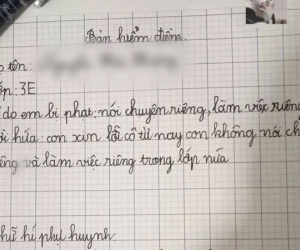 Bản kiểm điểm.
ọ tên:
ớp: 3E
í do em bị phạt: nói chuyện riêng, làm việc riêng
ời hứa: con xin lỗi cô từ nay con không nói ch
iêng và làm việc riêng trong lớp nữa
hữ kí phụ huynh